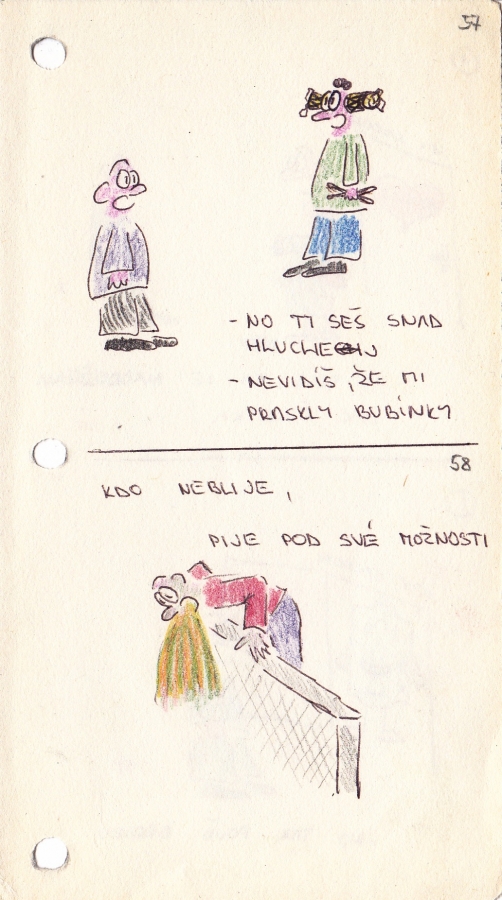 57
- NO TI SEŠ SNAD
HLUCHEJ
- NEVIDÍŠ, ŽE MI
PRASKLY BUBÍNKY
58
KDO NEBLIJE,
PIJE POD SVÉ MOŽNOSTI